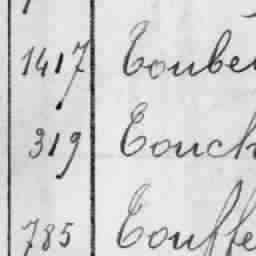 1417 Touber
319 Touch
785 Touffe